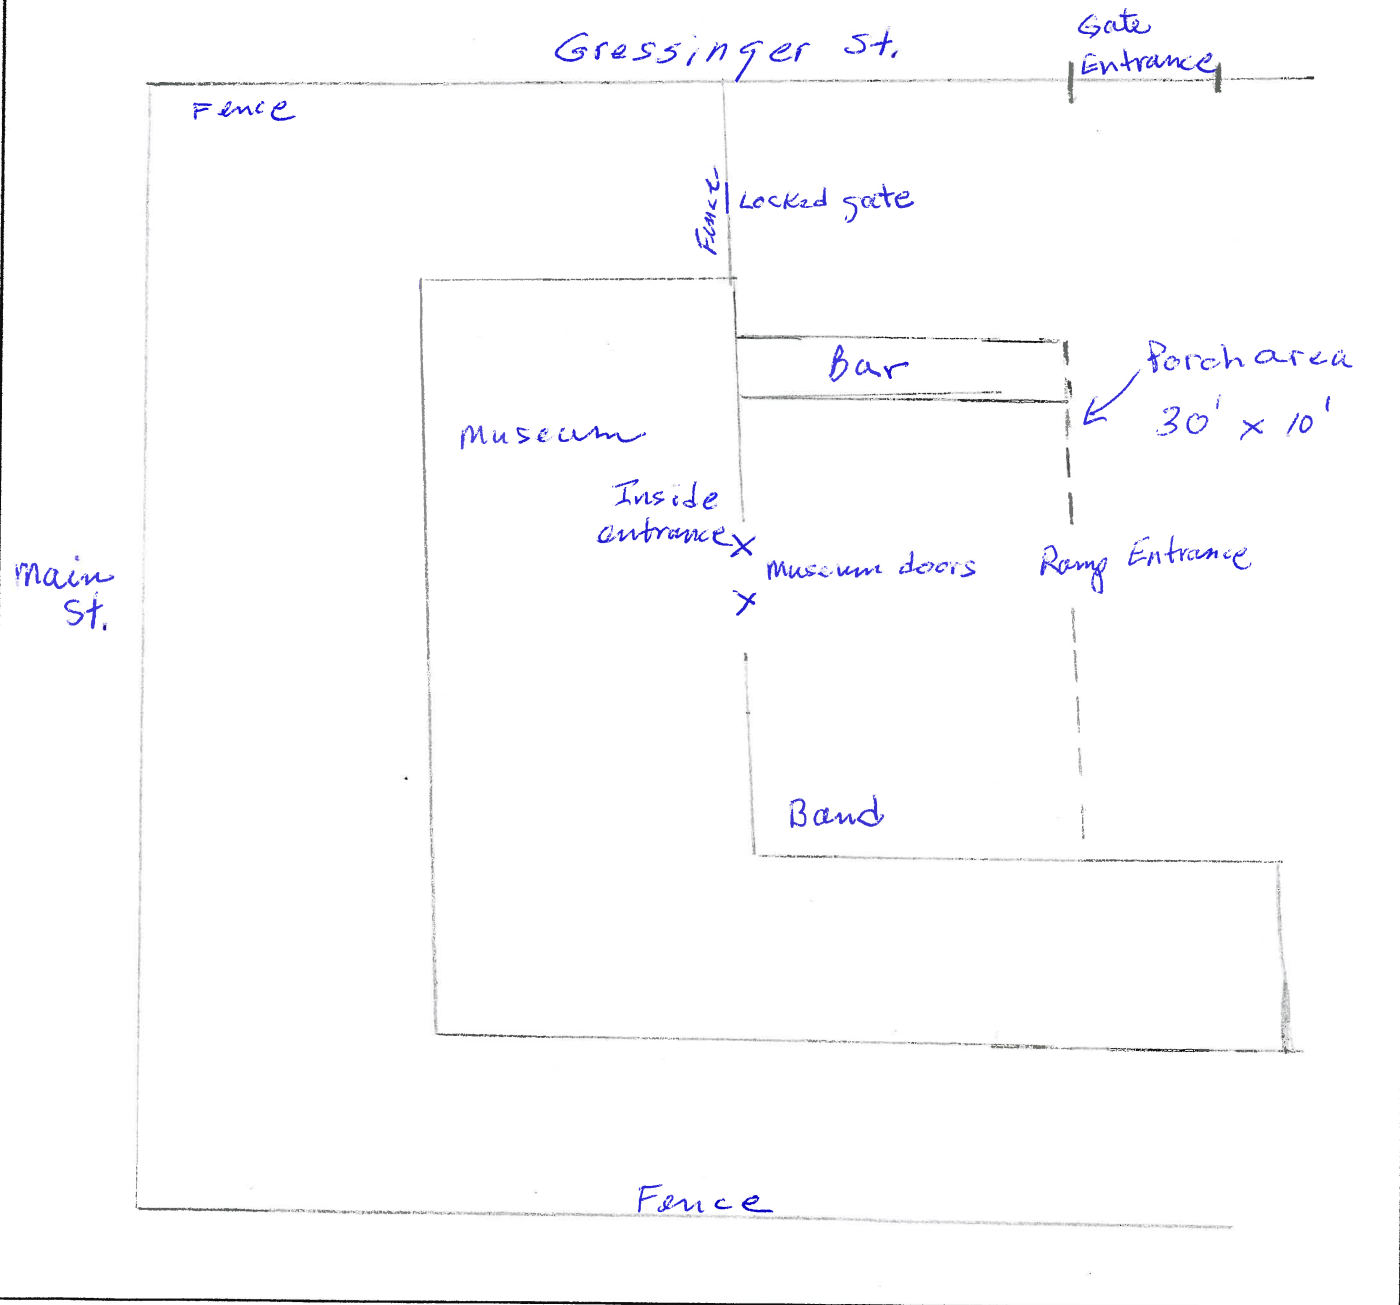 Gressinger St.
Gate
Entrance
Fence
Fence
Locked gate
Bar
Porch area
30' x 10'
Museum
Inside
entrance x
Museum doors
x
Ramp Entrance
Main
St.
Band
Fence